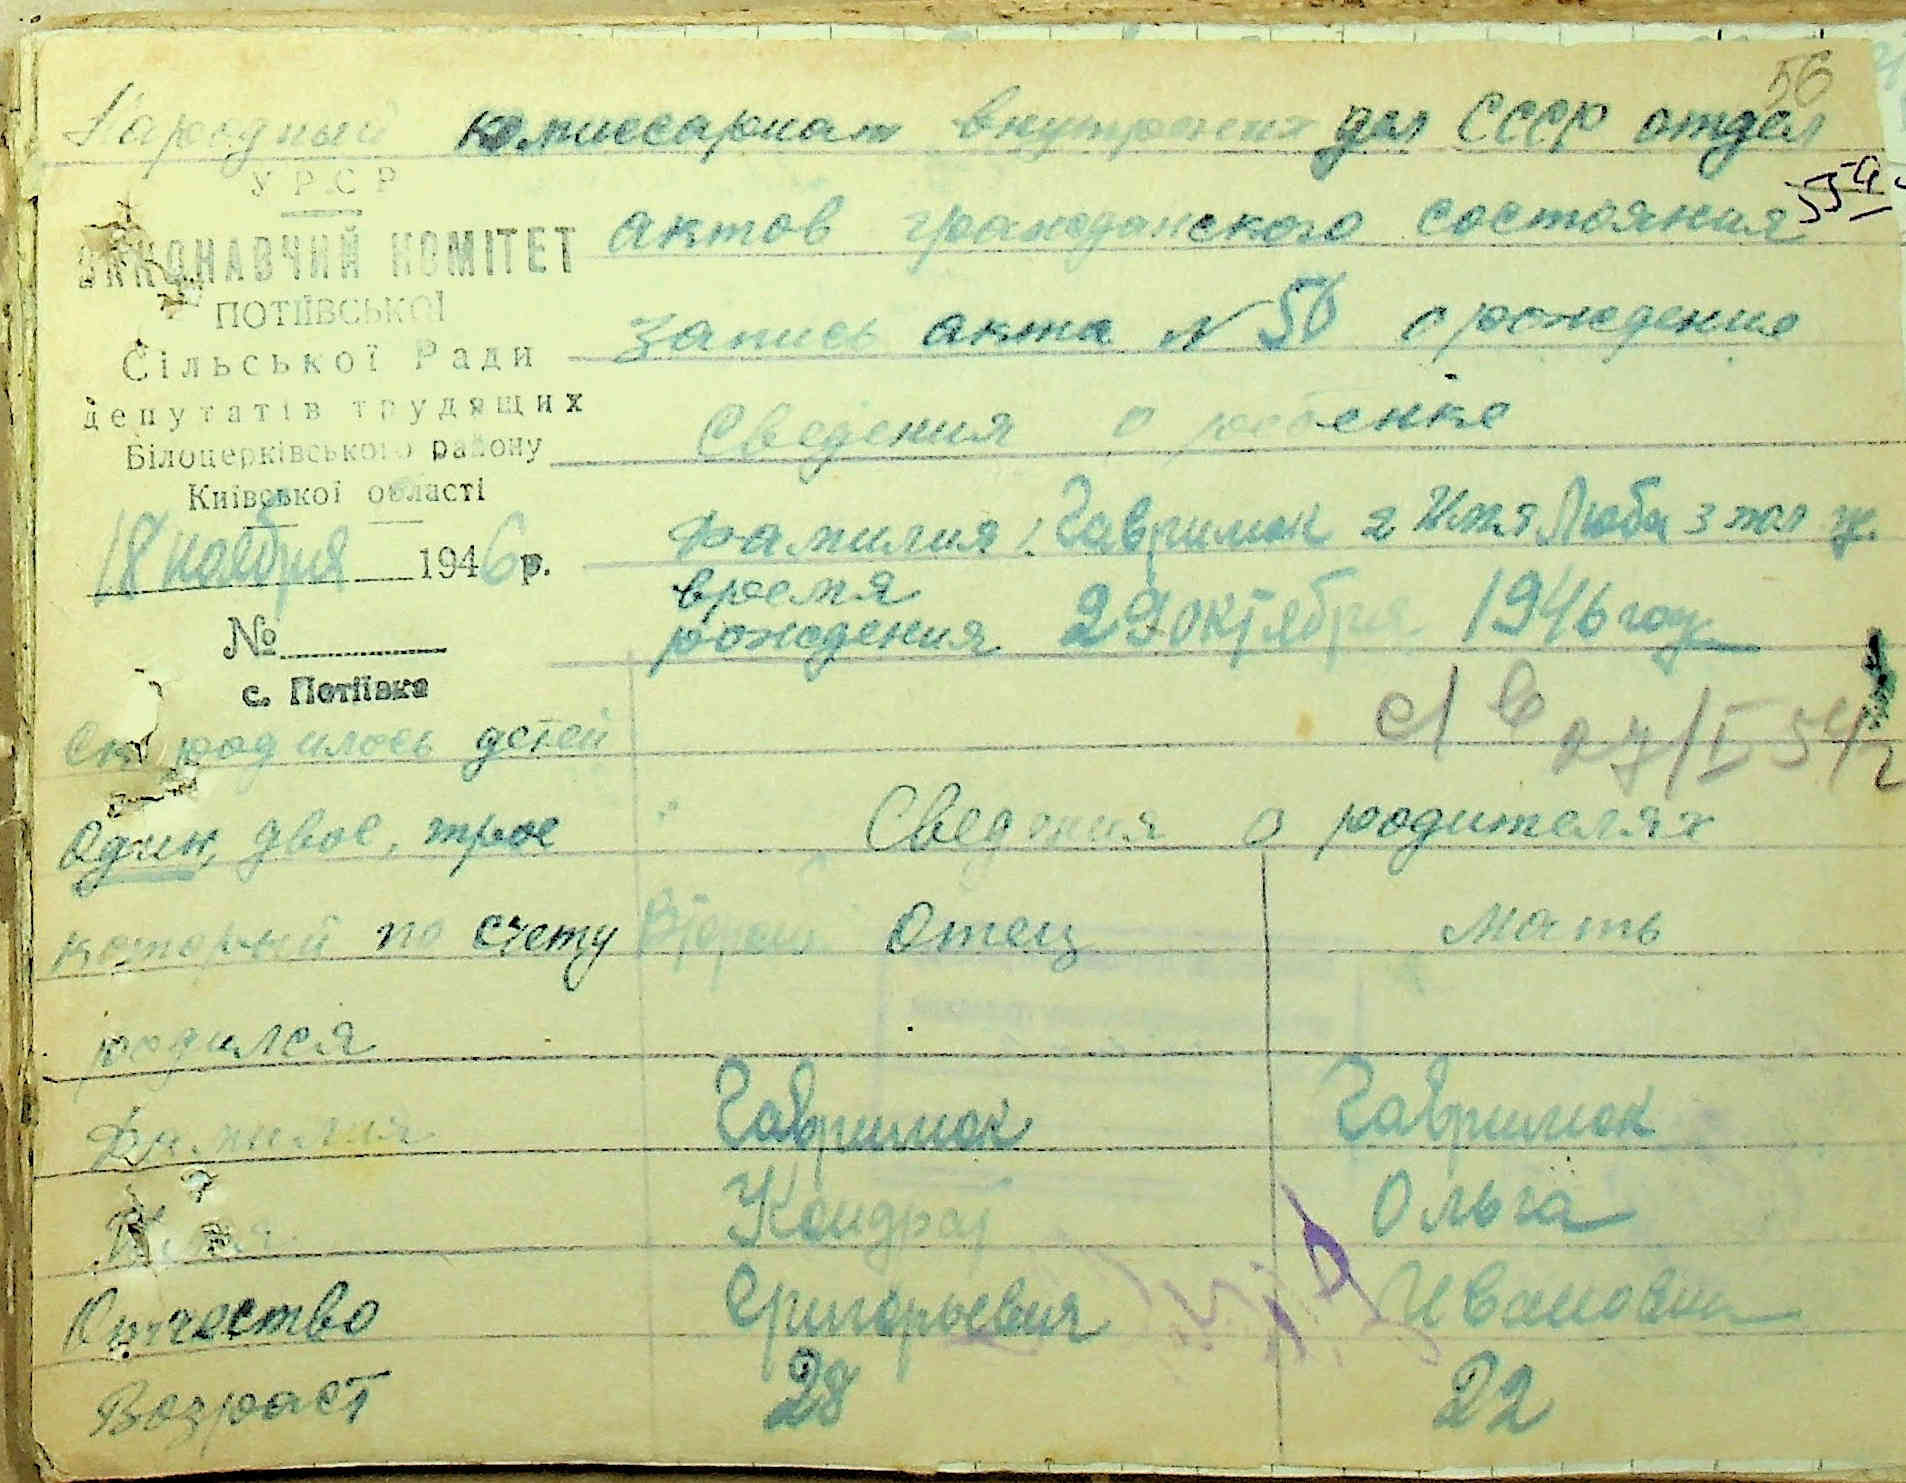 56
Народный комиссариат внутрених дел СССР отдел
УРСР
ВИКОНАВЧИЙ КОМІТЕТ
актов гражданского состояния
ПОТІЇВСЬКОЇ
запись акта N 56 о рождение
Сільської Ради
депутатів трудящих
Сведения о ребенке
Білоцерківського району
Київської області
Фамилия 1. Гаврилюк 2 Имя Люба 3 пол ж.
18 ноября 1946 р.
время
рождения 29 октября 1946 году
№
с. Потіївка
27/I 54 г
родилось детей
один, двое, трое Сведения о родителях
который по счету Второй Отец Мать
родился
Фамилия Гаврилюк Гаврилюк
Имя Кондрат Ольга
Отчество Григорьевич Ивановна
Возраст 28 22